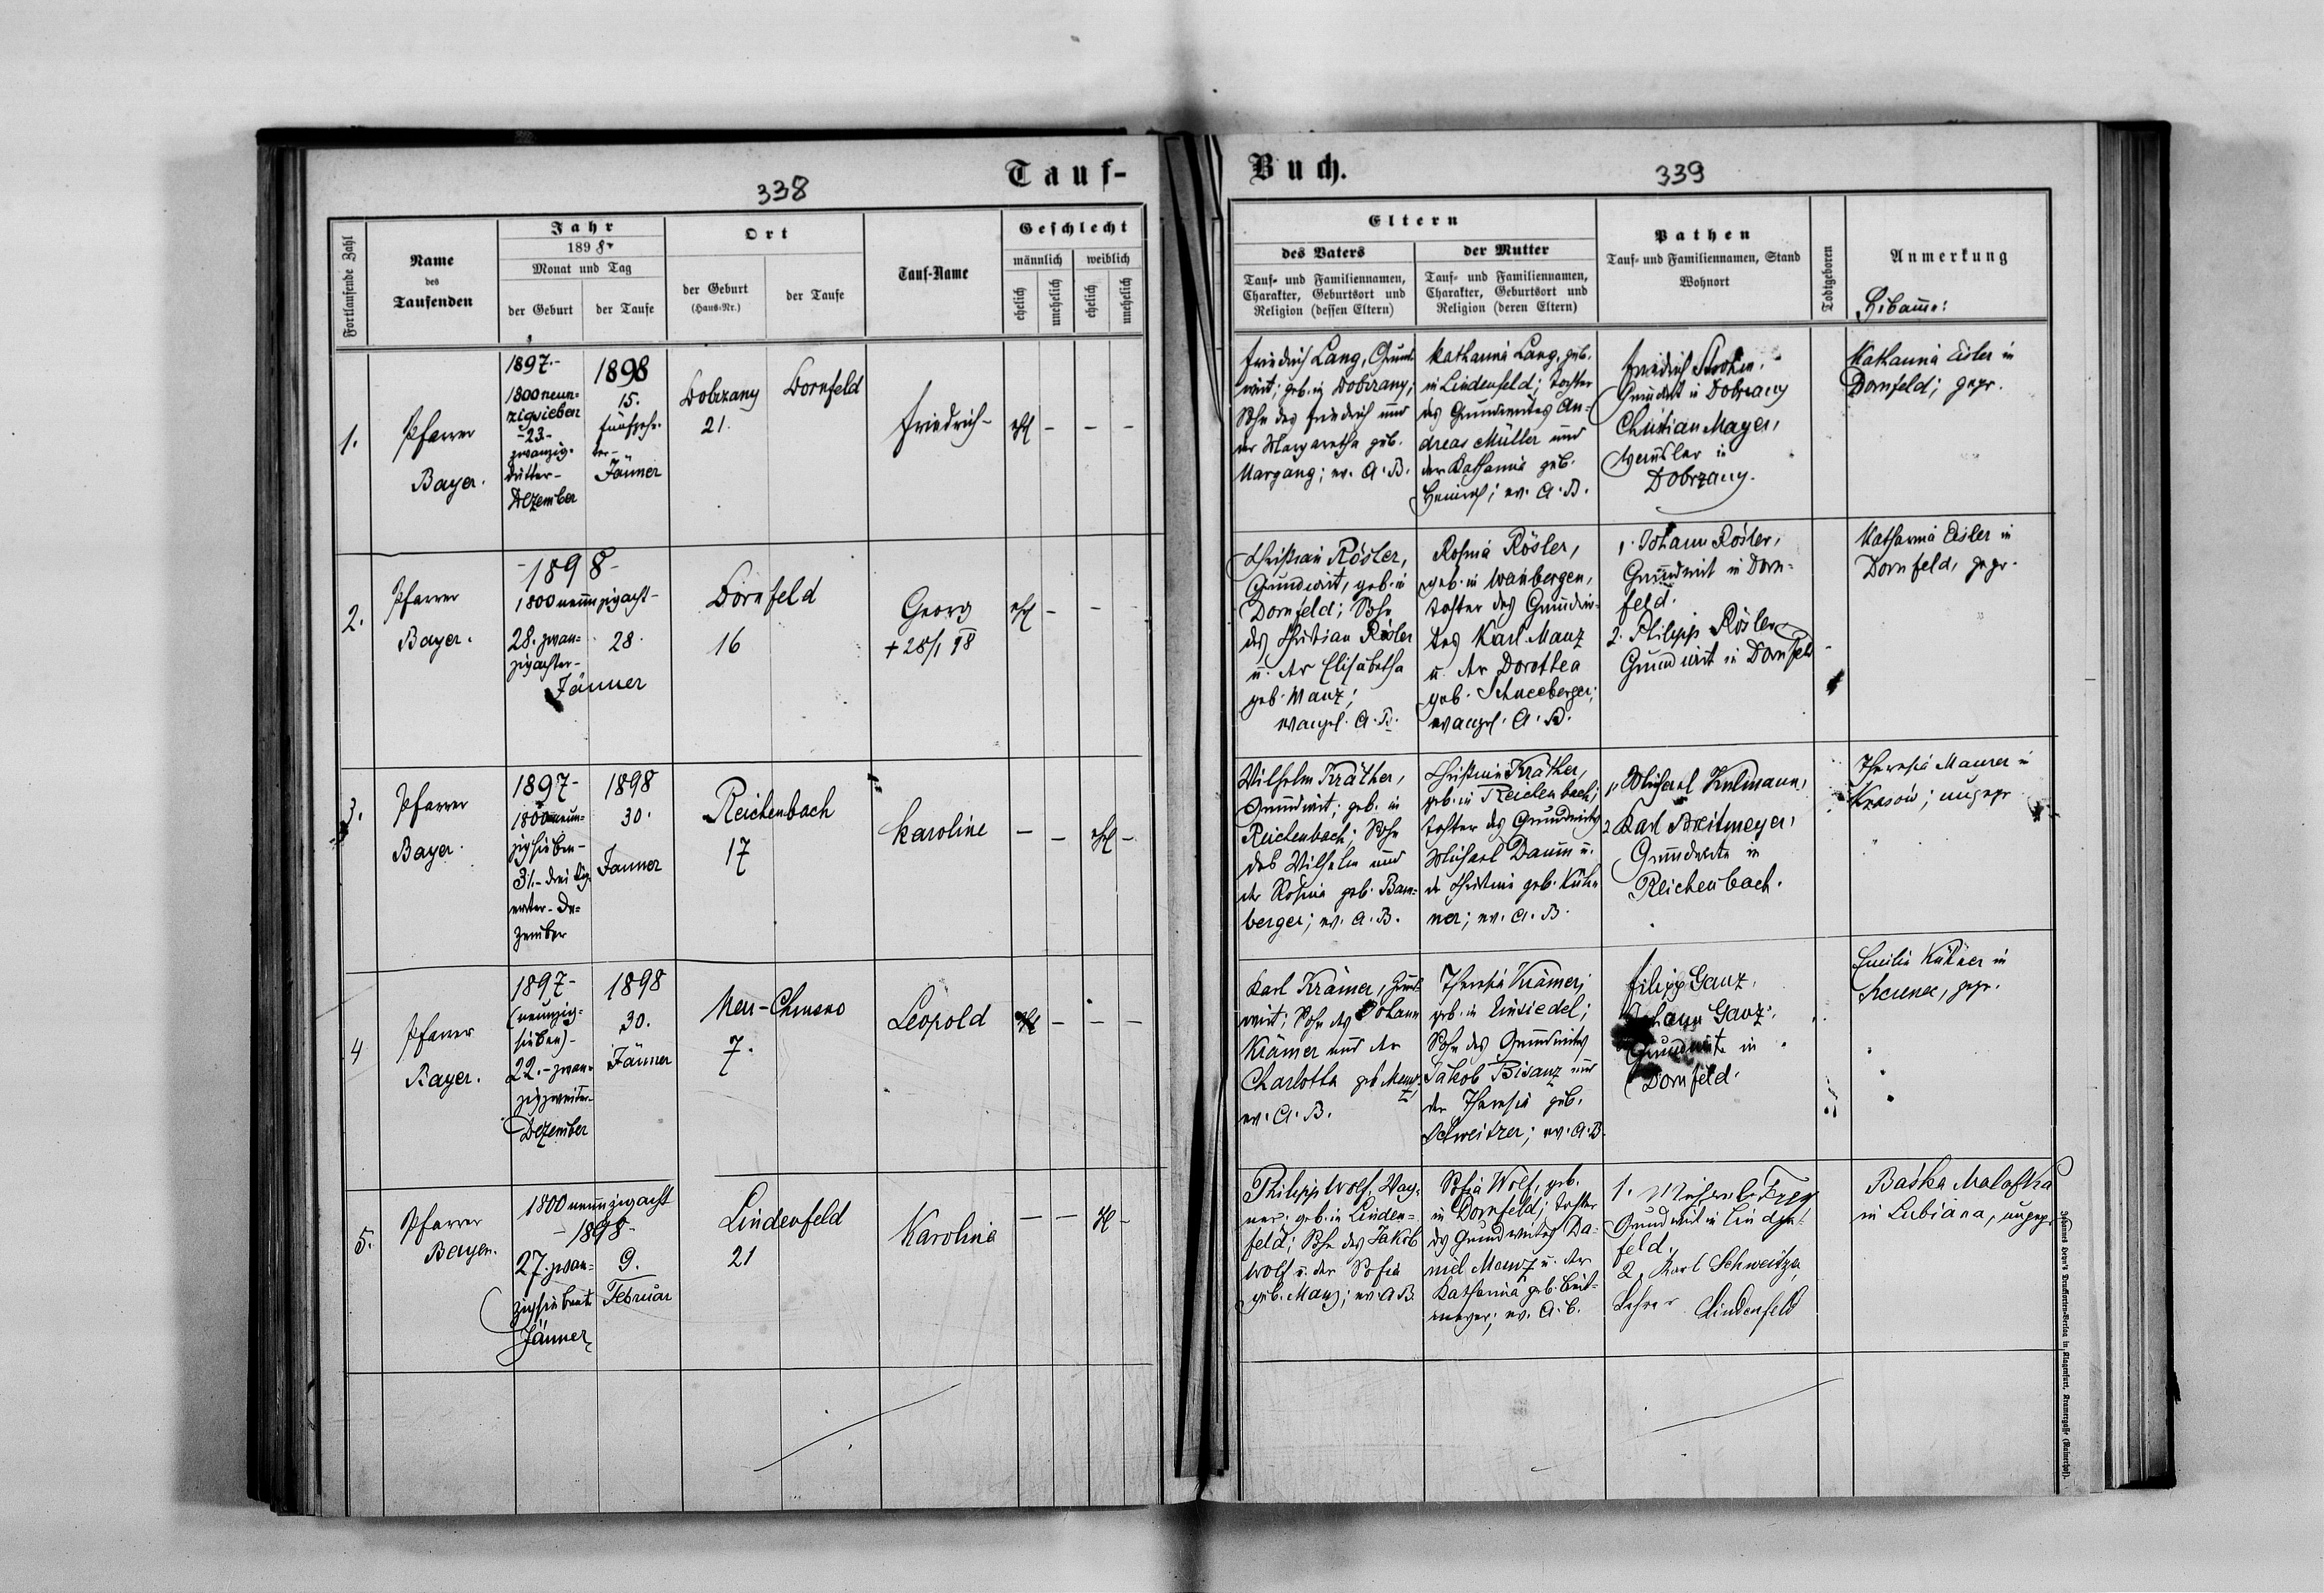 Tauf-
338
Fortlaufende Zahl
Name
des
Taufenden
Jahr
1898
Monat und Tag
der Geburt
der Taufe
Ort
der Geburt
(Haus-Nr.)
der Taufe
Tauf-Name
Geschlecht
männlich
weiblich
ehelich
unehelich
ehelich
unehelich
1.
Pfarrer
Bayer.
1897.-
1800neun-
zigsieben
-23.-
zwanzig-
dritter-
Dezember
1898
15.
fünfzehn-
ter-
Jänner
Dobrzany
21.
Dornfeld
Friedrich-
ehl - - -
2.
Pfarrer
Bayer.
-1898-
1800neunzigacht-
28. zwan-
zigachter-
28.
Jänner
Dornfeld
16
Georg
+28/1 98
ehl - - -
3.
Pfarrer
Bayer.
1897-
1800neun-
zigsieben-
31.-dreißig-
erster-De-
zember
1898
30.
Janner
Reichenbach
17
Karoline
- - ehl -
4
Pfarrer
Bayer.
1897-
(neunzig-
sieben)-
22.-zwan-
zigzweiter-
Dezember
1898
30.
Jänner
Neu-Chrusno
7.
Leopold
ehl - - -
5.
Pfarrer
Bayer.
1800neunzigacht
-1898-
27. zwan-
zigsiebent
Jänner
9.
Februar
Lindenfeld
21
Karolina
- - -
Buch.
339
Eltern
des Vaters
Tauf- und Familiennamen,
Charakter, Geburtsort und
Religion (dessen Eltern)
der Mutter
Tauf- und Familiennamen,
Charakter, Geburtsort und
Religion (deren Eltern)
Pathen
Tauf- und Familiennamen, Stand
Wohnort
Todtgeboren
Anmerkung
Friedrich Lang, Grund-
wirt; geb. in Dobrzany;
Sohn des Friedrich und
der Margaretha geb.
ev. A. B.
Katharina Lang, geb.
in Lindenfeld; Tochter
des Grundwirtes An-
dreas Müller und
der Katharina geb.
Heinrich; ev. A. B.
Friedrich
Grundwirt in Dobrzany
Christian Mayer,
in
Dobrzany.
Katharina Eisler in
Dornfeld; gepr.
Christian Rösler,
Grundwirt, geb. in
Dornfeld; Sohn
des Christian Rösler
u. der Elisabetha
geb. Manz;
evangel. A. B.
Rosina Rösler,
geb. in Weinbergen,
Tochter des Grundwir-
tes Karl Manz
u. der Dorothea
geb. Schneeberger;
evangel. A. B.
1. Johann Rösler,
Grundwirt in Dorn-
feld.
2. Philipp Rösler
Grundwirt in Dornfeld
Katharina Eisler in
Dornfeld, gepr.
Wilhelm Kräther,
Grundwirt; geb. in
Reichenbach; Sohn
des Wilhelm und
der Rosina geb. Bam-
berger; ev. A. B.
Christina Kräther,
geb. in Reichenbach;
Tochter des Grundwirts
Michael Daum u.
der Christina geb. Küh-
ner; ev. A. B.
1. Michael Kulmann,
2 Karl Breitmeyer,
Grundwirte in
Reichenbach.
Theresia Maurer in
Krasów; ungepr
Karl Krämer, Grund-
wirt; Sohn des Johann
Krämer und der
Charlotta geb. Manz,
ev. A. B.
Theresia Krämer,
geb. in Einsiedel;
Sohn des Grundwirts
Jakob Bisanz und
der Theresia geb.
Schweitzer; ev. A. B.
Filipp Ganz,
Johann Ganz,
Grundwirte in
Dornfeld.
Emilie Kühner in
gepr.
Philipp Wolf, Wag-
ner; geb. in Linden-
feld; Sohn des Jakob
Wolf u. der Sofia
geb. Manz; ev. A. B.
Sofia Wolf, geb.
in Dornfeld; Tochter
des Grundwirtes Da-
niel Manz u. der
Katharina geb. Breit-
mayer; ev. A. B.
1.
Grundwirt in Linden-
feld,
2. Karl Schweitzer,
Lehrer Lindenfeld
Baśka
in Lubiana, ungepr.